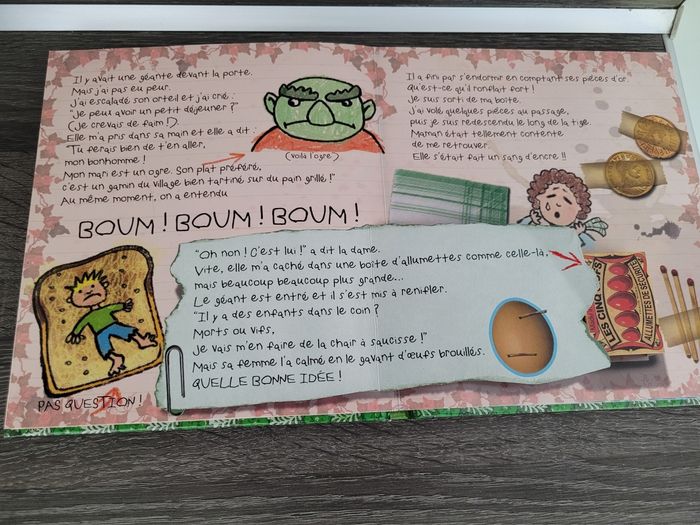 Il y avait une géante devant la porte.
Mais j'ai pas eu peur.
J'ai escaladé son orteil et j'ai crié :
"Je peux avoir un petit déjeuner ?"
(Je crevais de faim !).
Elle m'a pris dans sa main et elle a dit :
"Tu ferais bien de t'en aller,
mon bonhomme !
Mon mari est un ogre. Son plat préféré,
c'est un gamin du village bien tartiné sur du pain grillé !"
Au même moment, on a entendu
(voilà l'ogre)
BOUM ! BOUM ! BOUM !
PAS QUESTION !
"Oh non ! C'est lui !" a dit la dame.
Vite, elle m'a caché dans une boîte d'allumettes comme celle-là,
mais beaucoup beaucoup plus grande...
Le géant est entré et il s'est mis à renifler.
"Il y a des enfants dans le coin ?
Morts ou vifs,
Je vais m'en faire de la chair à saucisse !"
Mais sa femme l'a calmé en le gavant d'œufs brouillés.
QUELLE BONNE IDÉE !
Il a fini par s'endormir en comptant ses pièces d'or,
qu'est-ce qu'il ronflait fort !
Je suis sorti de ma boîte.
J'ai volé quelques pièces au passage,
puis je suis redescendu le long de la tige.
Maman était tellement contente
de me retrouver.
Elle s'était fait un sang d'encre !!
LES CINQ
ALLUMETTES DE SÛRETÉ